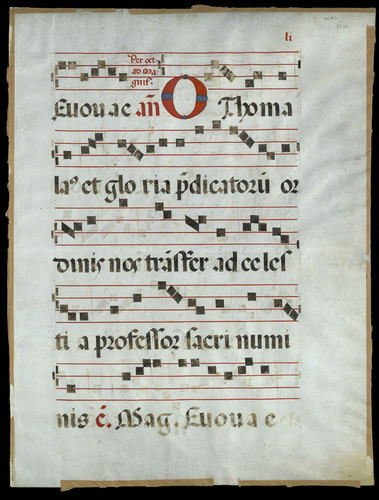 li
Per oct.
ad mag
gnif.
Euouae añ O Thoma
laꝰ et gloria p̄dicatorū or
dinis nos trāsfer ad celes
tia professor sacri numi
nis c̄. Mag. Euouae